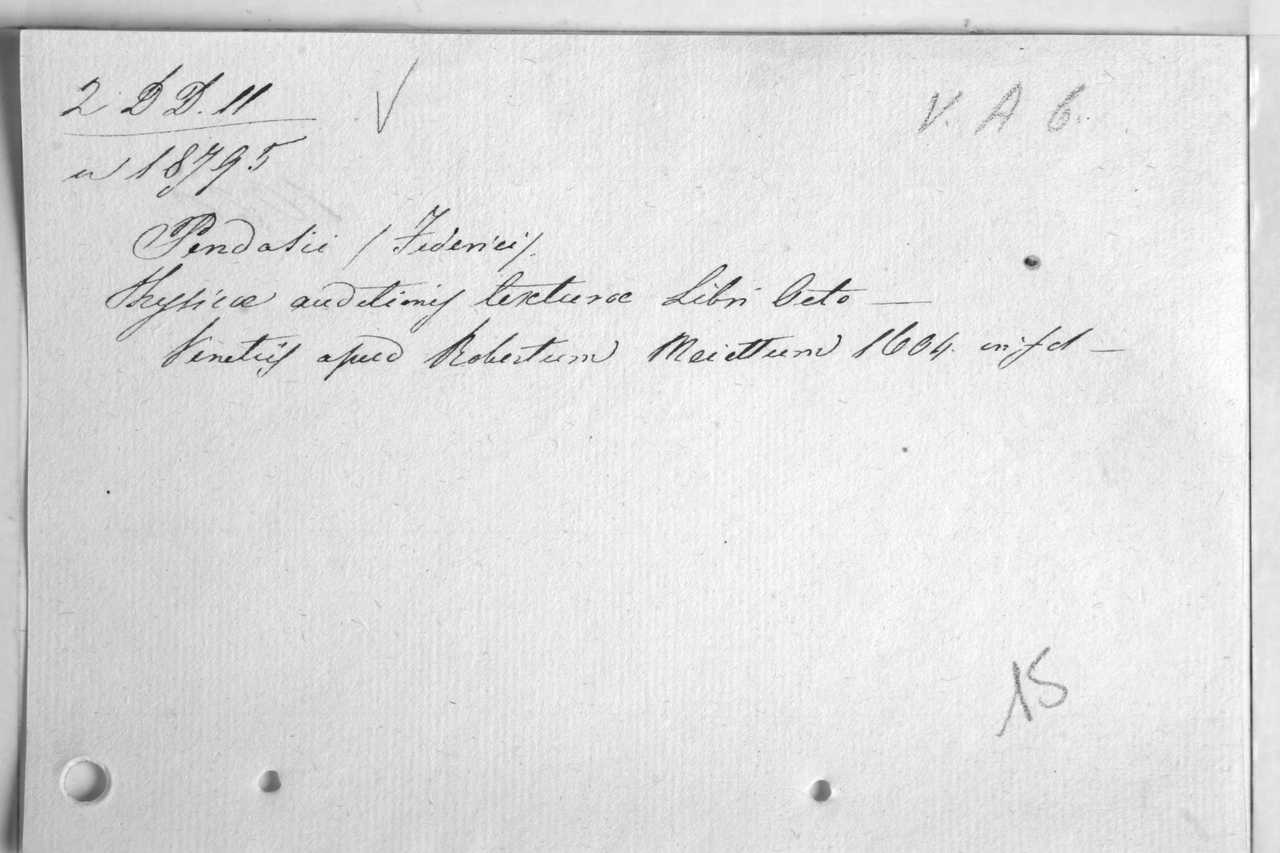 2 D D. 11
V. A 6.
n 18795
Pendasii / Federici /.
Physicae auditionis texturae Libri Octo —
Venetiis apud Robertum Maiettum 1604. in fol —
15